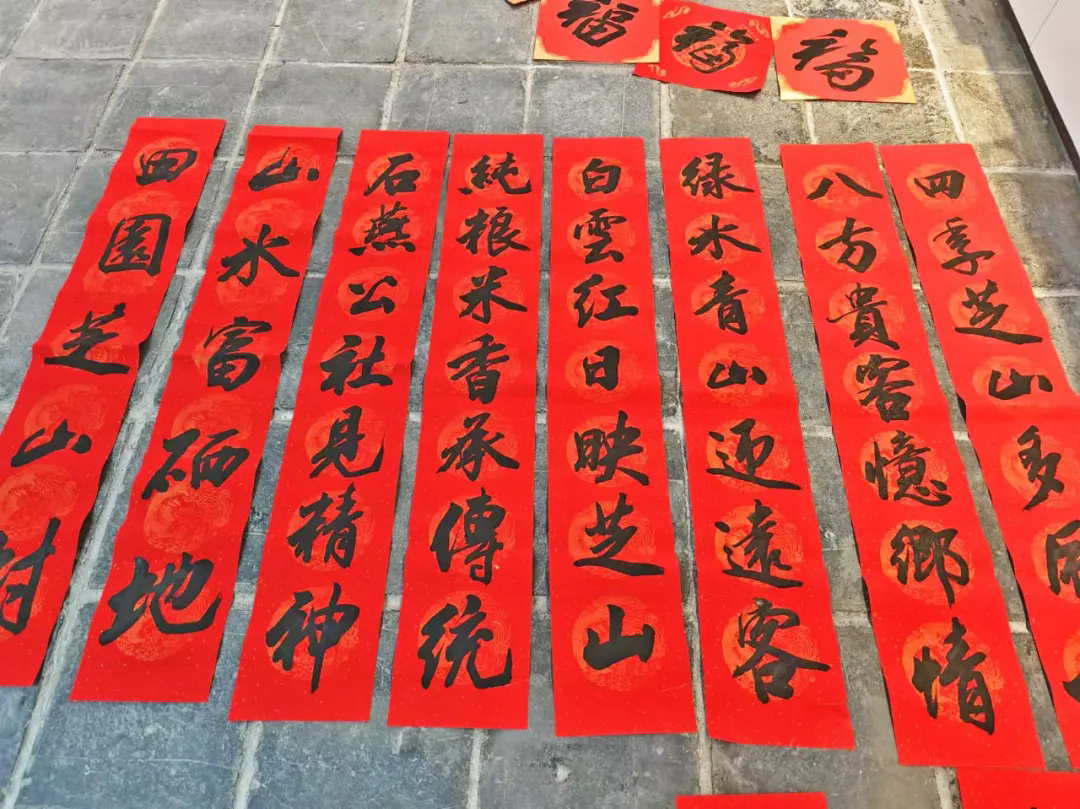 福
福
福
四季芝山多
八方貴客憶鄉情
绿水青山迎遠客
白雲红日映芝山
純粮米香承傳统
石燕公社見精神
山水富硒地
田園芝山村